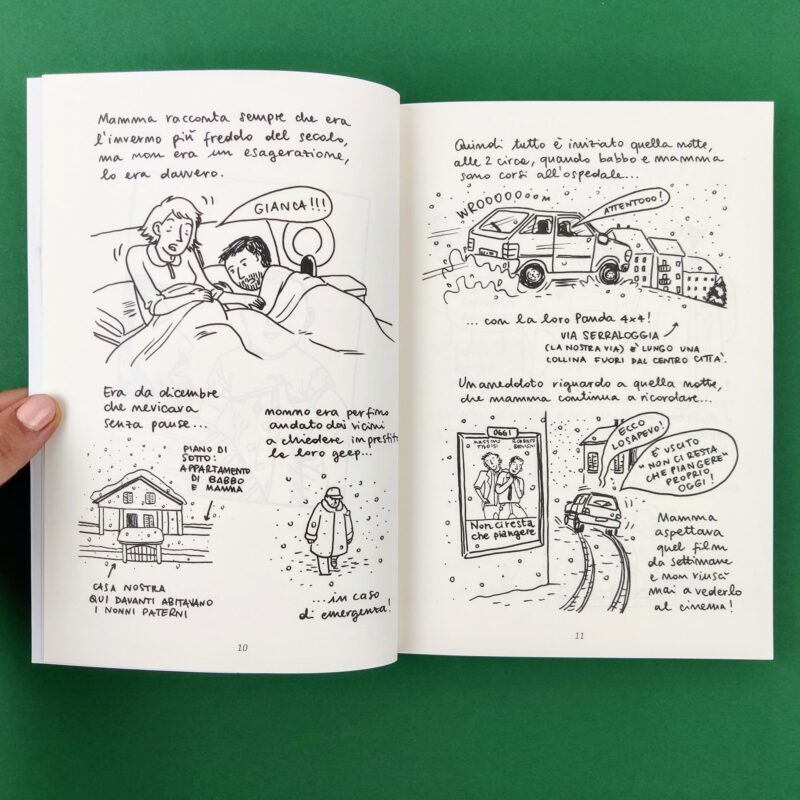 Mamma racconta sempre che era
l'inverno più freddo del secolo,
ma non era un esagerazione,
lo era davvero.
GIANCA!!!
Era da dicembre
che nevicava
senza pause...
PIANO DI
SOTTO:
APPARTAMENTO
DI BABBO
E MAMMA
CASA NOSTRA
QUI DAVANTI ABITAVANO
I NONNI PATERNI
nonno era perfino
andato dai vicini
a chiedere in prestito
la loro geep...
...in caso
di emergenza!
10
Quindi tutto è iniziato quella notte,
alle 2 circa, quando babbo e mamma
sono corsi all'ospedale...
WROOOOOOOM
ATTENTOOO!
...con la loro Panda 4x4!
VIA SERRALOGGIA
(LA NOSTRA VIA) E' LUNGO UNA
COLLINA FUORI DAL CENTRO CITTÀ.
Un aneddoto riguardo a quella notte,
che mamma continua a ricordare...
OGGI
MASSIMO ROBERTO
TROISI BENIGNI
Non ci resta
che piangere
ECCO
LO SAPEVO!
E' USCITO
"NON CI RESTA
CHE PIANGERE"
PROPRIO
OGGI!
Mamma
aspettava
quel film
da settimane
e non riuscì
mai a vederlo
al cinema!
11